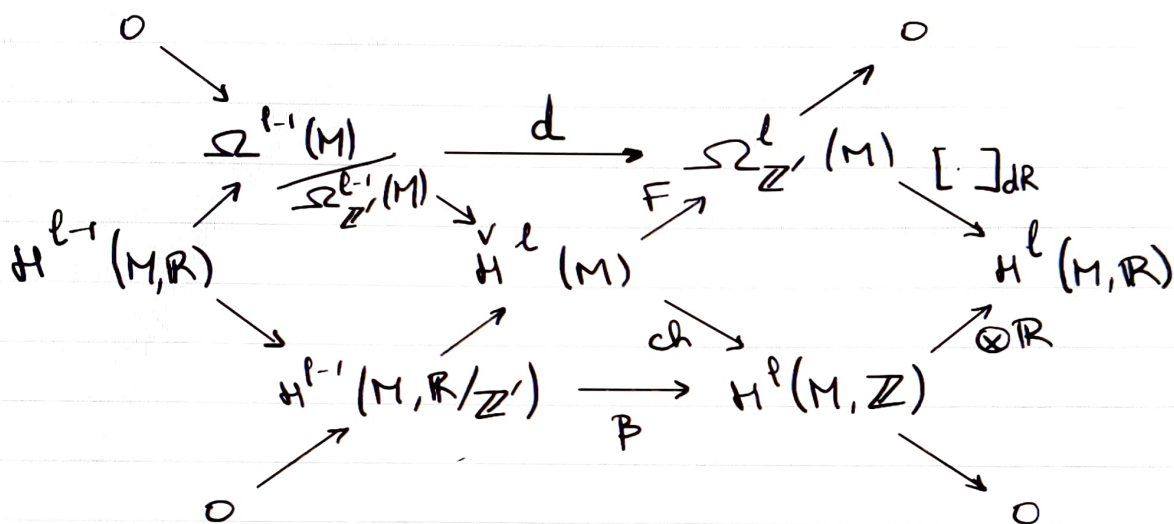 0 0
Ω^{ℓ-1}(M) / Ω_{ℤ'}^{ℓ-1}(M) d Ω_{ℤ'}^{ℓ}(M) [·]_{dR}
F
H^{ℓ-1}(M,ℝ) Ȟ^{ℓ}(M) H^{ℓ}(M,ℝ)
ch ⊗ℝ
H^{ℓ-1}(M,ℝ/ℤ') β H^{ℓ}(M,ℤ)
0 0